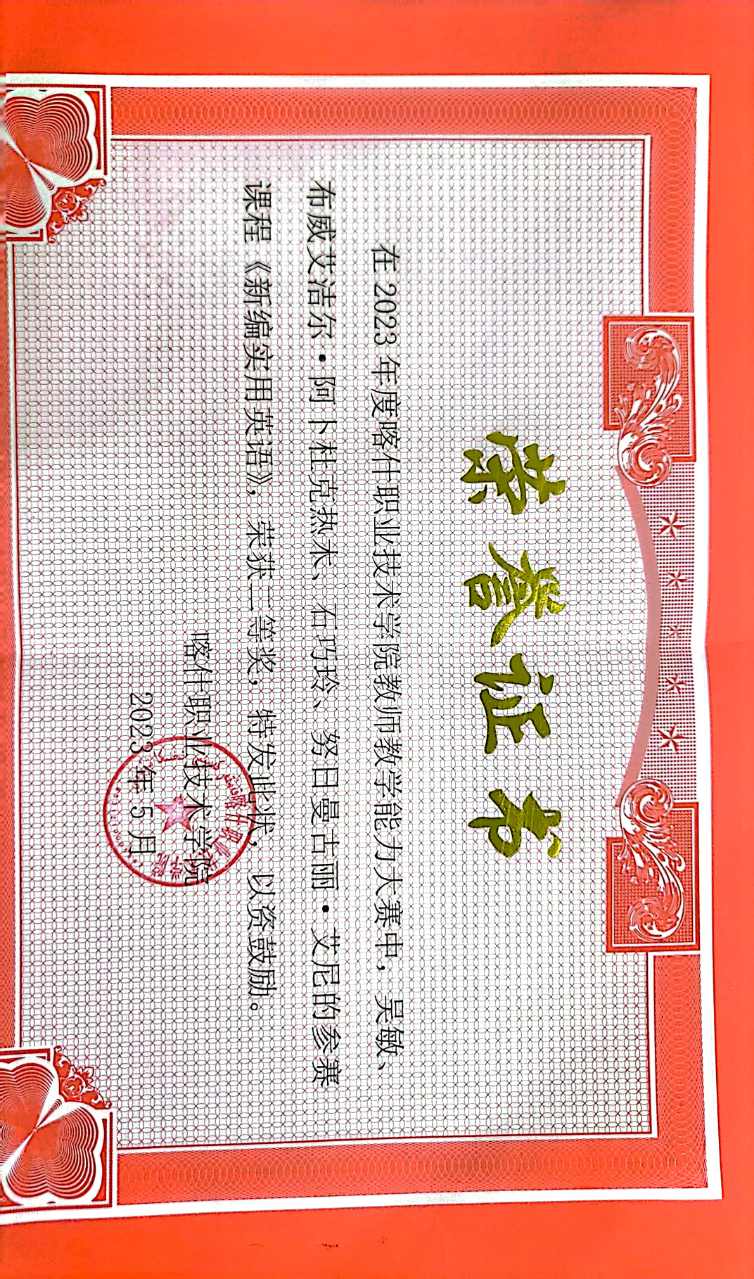 荣誉证书
在2023年度喀什职业技术学院教师教学能力大赛中，吴敏、
布威艾洁尔·阿卜杜克热木、石巧玲、努日曼古丽·艾尼的参赛
课程《新编实用英语》，荣获二等奖，特发此状，以资鼓励。
喀什职业技术学院
2023年5月